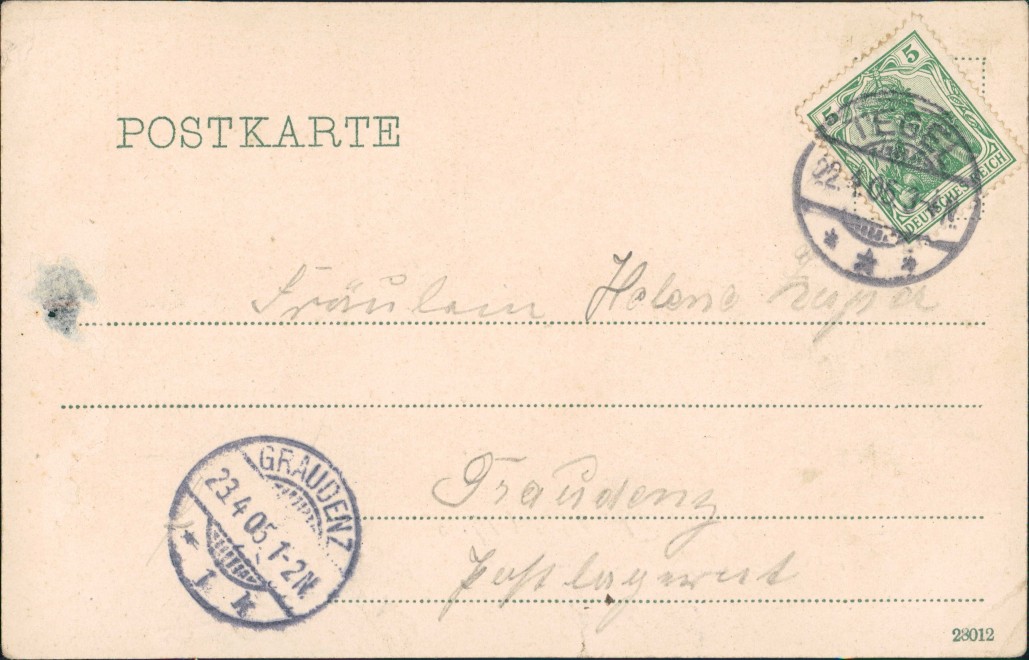 POSTKARTE
5
5
DEUTSCHES REICH
TEGEL
22.4.05
N
Fräulein Helene
GRAUDENZ
23.4.05.1-2N
1 k
Graudenz
Postlagernd
28012